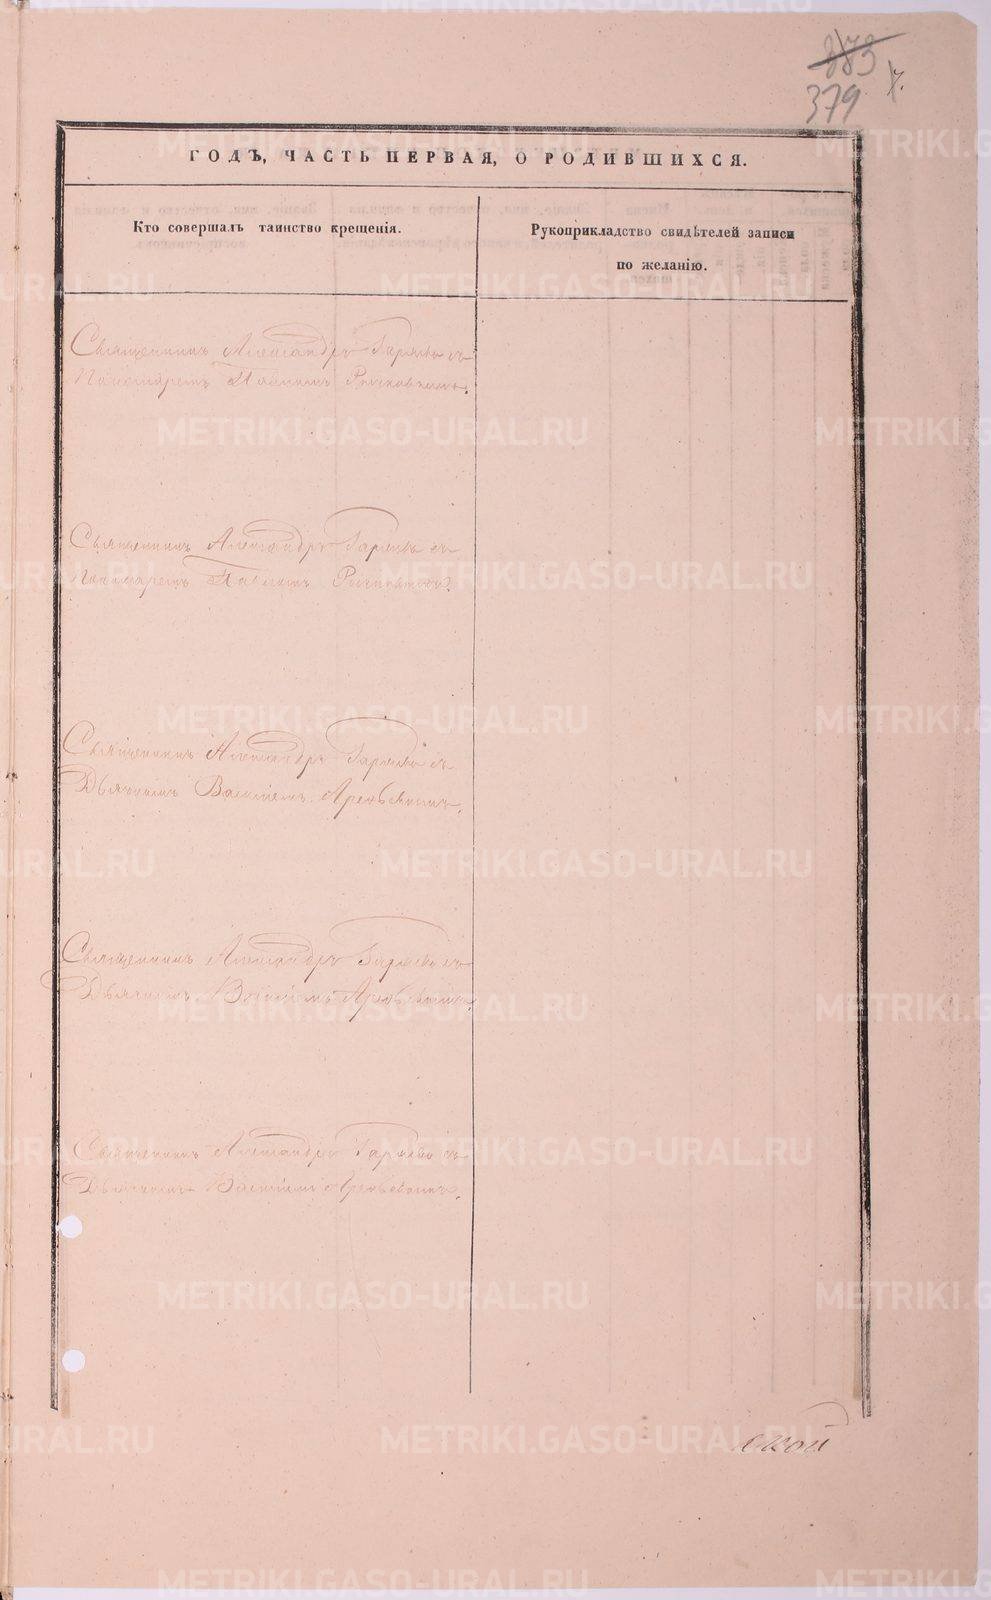 883
379
ГОДЪ, ЧАСТЬ ПЕРВАЯ, О РОДИВШИХСЯ.
Кто совершалъ таинство крещенія.
Рукоприкладство свидѣтелей записи
по желанію.
Священникъ Александръ Гаряевъ съ
Пономаремъ Павломъ
Священникъ Александръ Гаряевъ съ
Пономаремъ Павломъ
Священникъ Александръ Гаряевъ съ
Дьячкомъ Василіемъ Арефьевымъ.
Священникъ Александръ Гаряевъ съ
Дьячкомъ Василіемъ Арефьевымъ.
Священникъ Александръ Гаряевъ съ
Дьячкомъ Василіемъ Арефьевымъ.
ской
METRIKI.GASO-URAL.RU